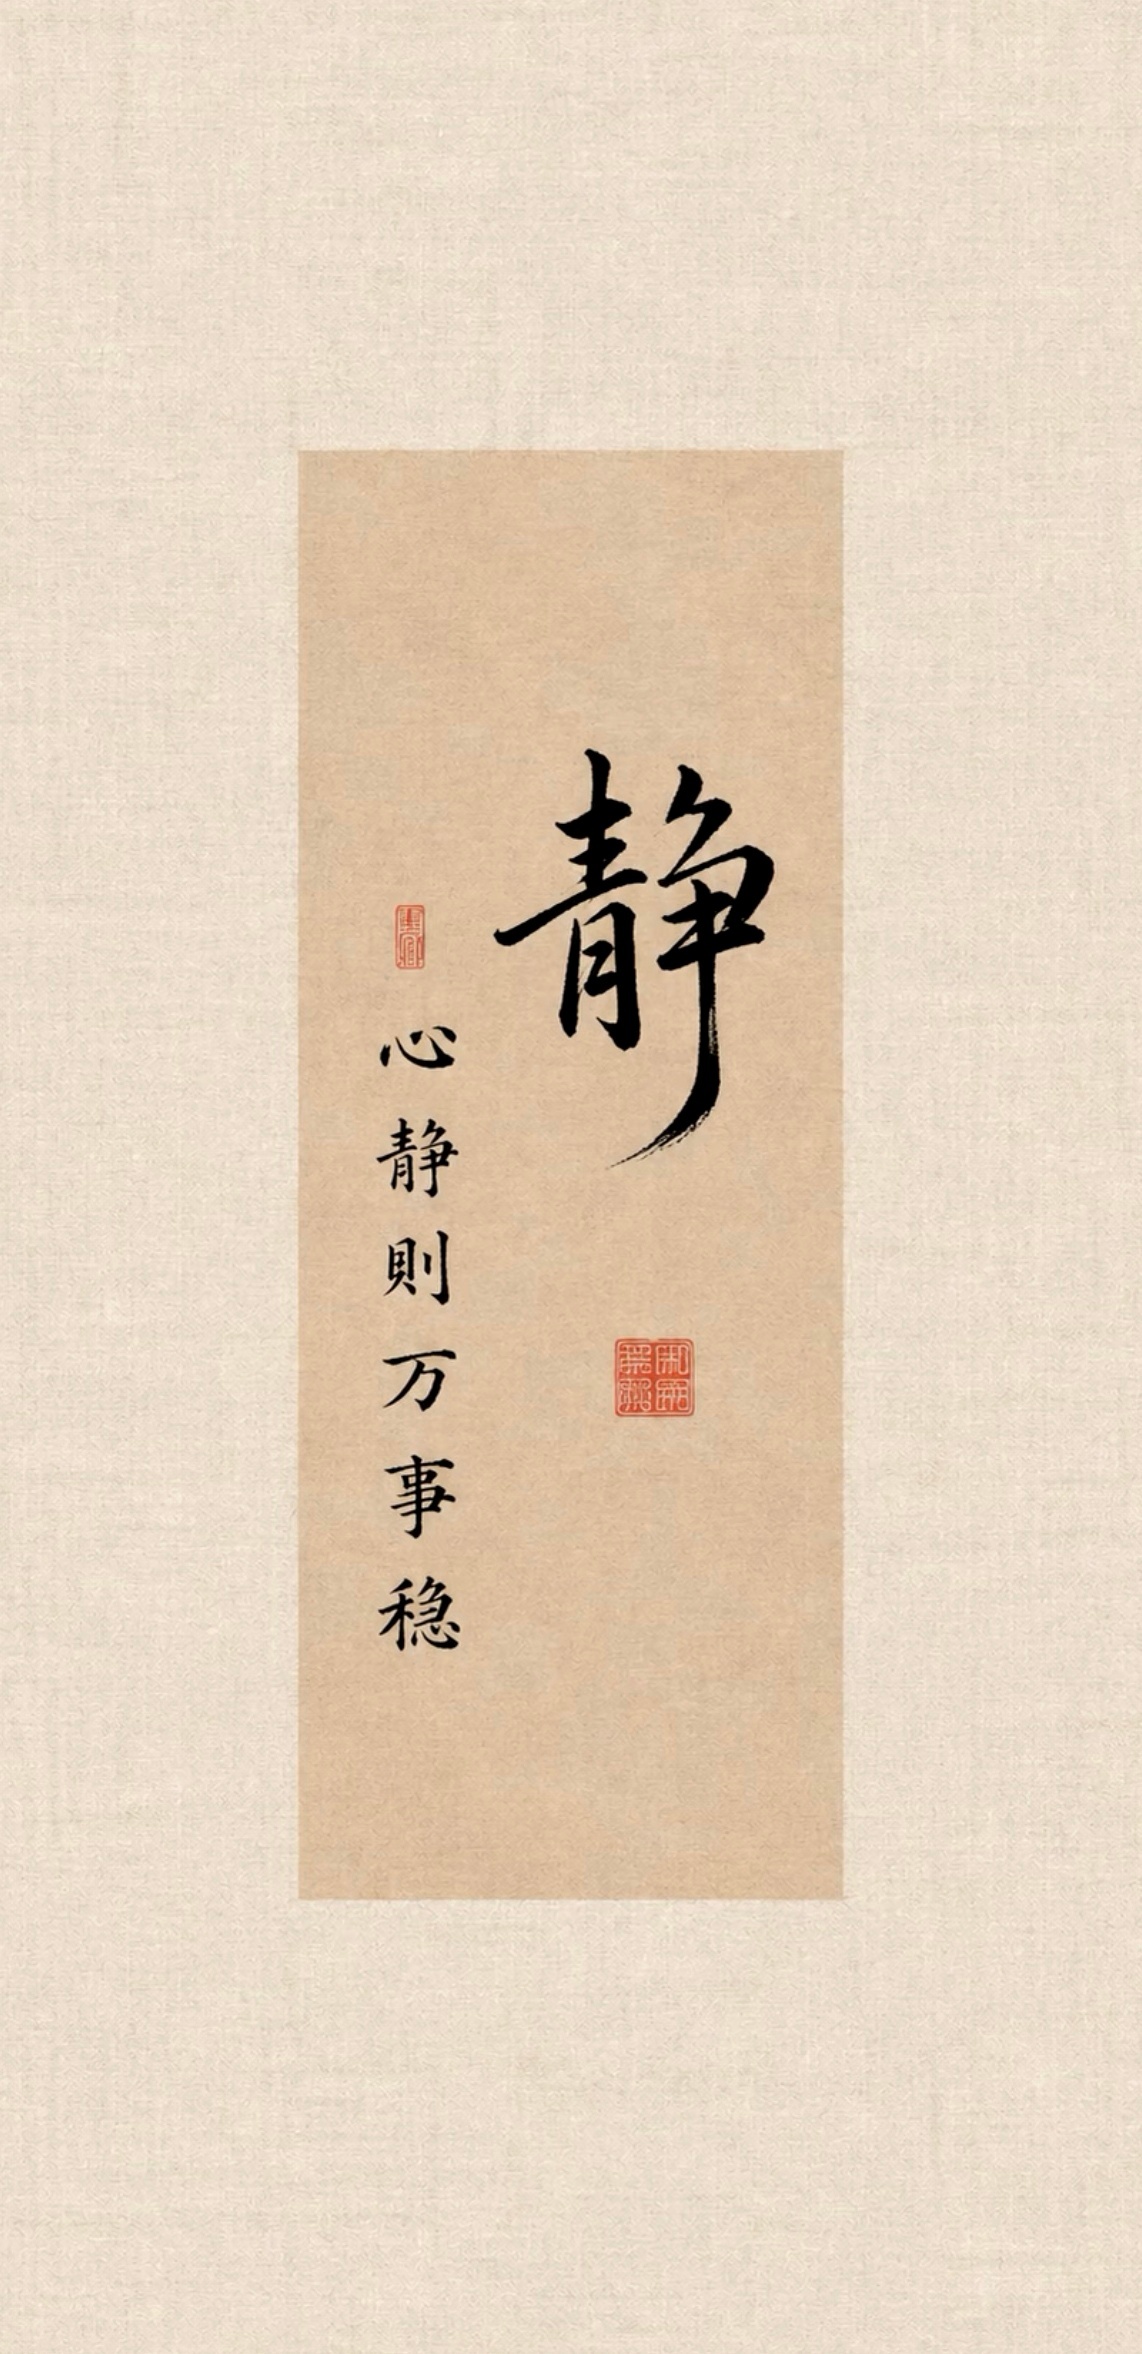 静
心静則万事稳